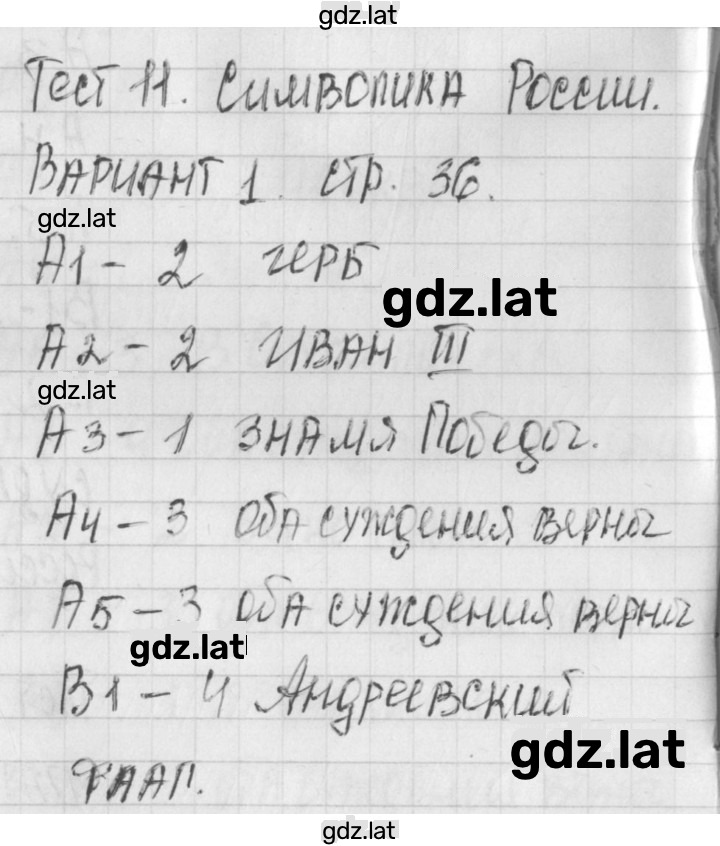 gdz.lat
Тест 11. Символика России.
Вариант 1. стр. 36.
gdz.lat
А1 - 2 герб
gdz.lat
А2 - 2 Иван III
gdz.lat
А3 - 1 знамя Победы.
А4 - 3 оба суждения верны
А5 - 3 оба суждения верны
gdz.lat
В1 - 4 Андреевский
gdz.lat
флаг.
gdz.lat